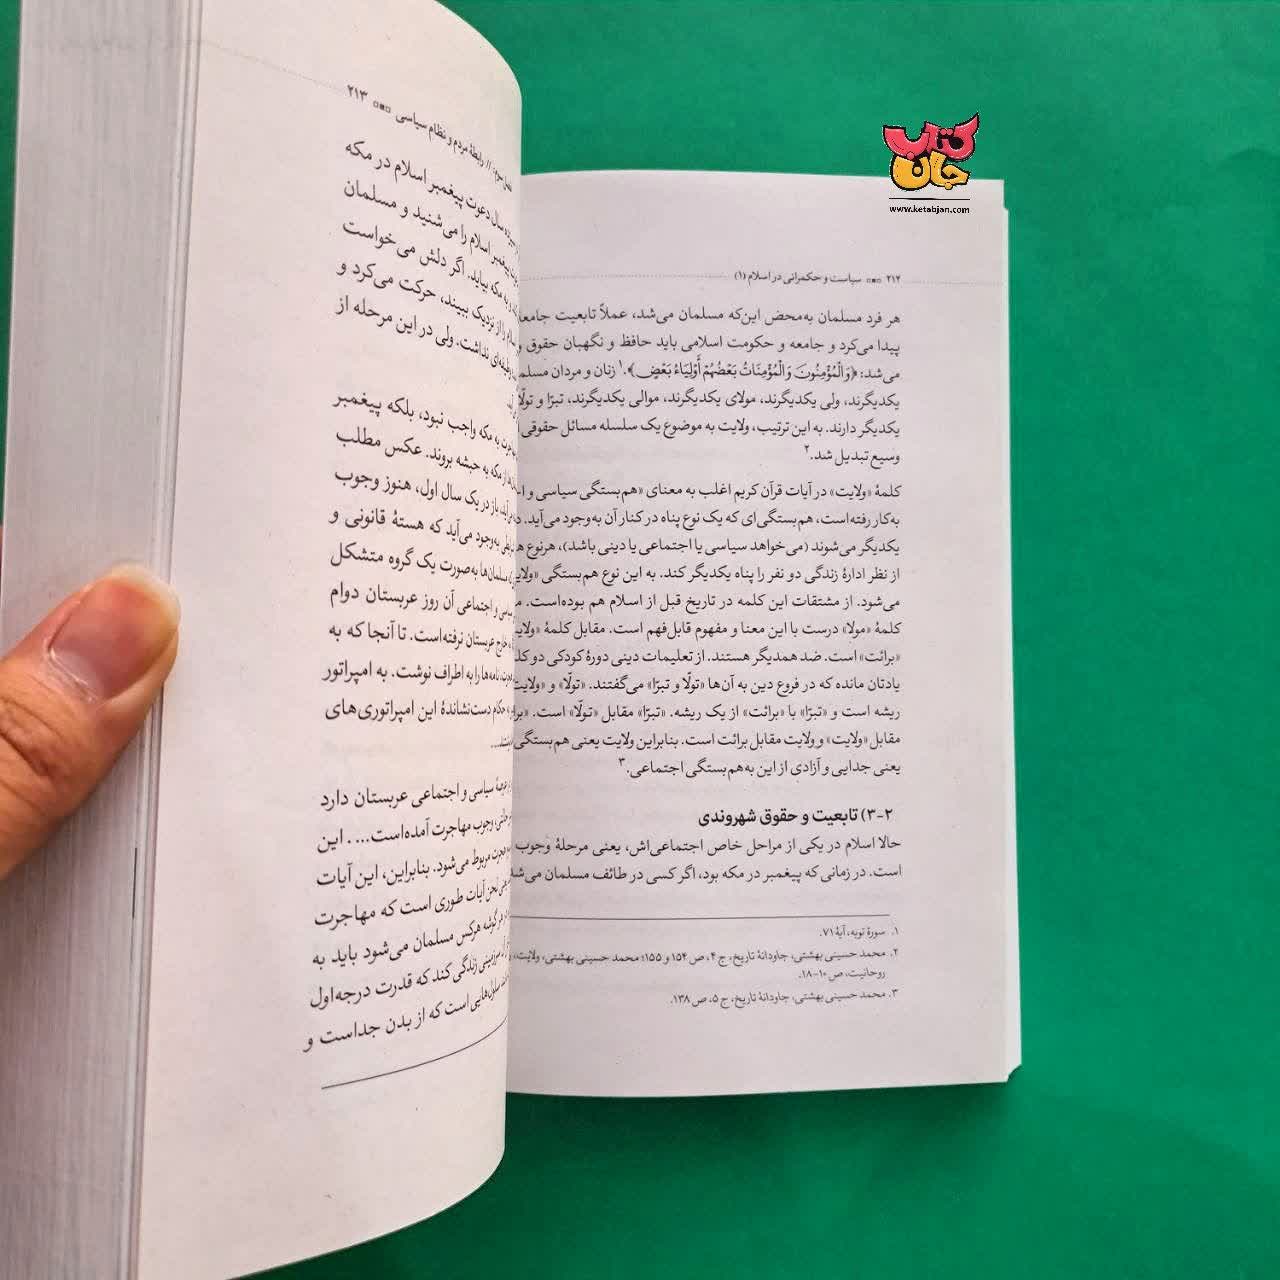 کتاب جان
www.ketabjan.com
۲۱۲ سیاست و حکمرانی در اسلام (۱)
هر فرد مسلمان به‌محض این‌که مسلمان می‌شد، عملاً تابعیت جامعه
پیدا می‌کرد و جامعه و حکومت اسلامی باید حافظ و نگهبان حقوق و
می‌شد: ﴿وَالْمُؤْمِنُونَ وَالْمُؤْمِنَاتُ بَعْضُهُمْ أَوْلِيَاءُ بَعْضٍ﴾.۱ زنان و مردان
یکدیگرند، ولی یکدیگرند، مولای یکدیگرند، موالی یکدیگرند، تبرّا و تولّا
یکدیگر دارند. به این ترتیب، ولایت به موضوع یک سلسله مسائل حقوقی
وسیع تبدیل شد.۲
کلمهٔ «ولایت» در آیات قرآن کریم اغلب به معنای «هم‌بستگی سیاسی و
به‌کار رفته‌است، هم‌بستگی‌ای که یک نوع پناه در کنار آن به‌وجود می‌آید.
یکدیگر می‌شوند (می‌خواهد سیاسی یا اجتماعی یا دینی باشد)، هرنوع
از نظر ادارهٔ زندگی دو نفر را پناه یکدیگر کند. به این نوع هم‌بستگی
می‌شود. از مشتقات این کلمه در تاریخ قبل از اسلام هم بوده‌است.
کلمهٔ «مولا» درست با این معنا و مفهوم قابل‌فهم است. مقابل کلمهٔ
«برائت» است. ضد همدیگر هستند. از تعلیمات دینی دورهٔ کودکی دو
یادتان مانده که در فروع دین به آن‌ها «تولّا و تبرّا» می‌گفتند. «تولّا» و «ولایت
ریشه است و «تبرّا» با «برائت» از یک ریشه. «تبرّا» مقابل «تولّا» است.
مقابل «ولایت» و ولایت مقابل برائت است. بنابراین ولایت یعنی هم‌بستگی
یعنی جدایی و آزادی از این به‌هم‌بستگی اجتماعی.۳
۳-۲) تابعیت و حقوق شهروندی
حالا اسلام در یکی از مراحل خاص اجتماعی‌اش، یعنی مرحلهٔ وجوب
است. در زمانی که پیغمبر در مکه بود، اگر کسی در طائف مسلمان
۱. سورهٔ توبه، آیهٔ ۷۱.
۲. محمد حسینی بهشتی، جاودانهٔ تاریخ، ج ۴، ص ۱۵۴ و ۱۵۵؛ محمد حسینی بهشتی، ولایت،
روحانیت، ص ۱۰-۱۸.
۳. محمد حسینی بهشتی، جاودانهٔ تاریخ، ج ۵، ص ۱۳۸.
// رابطهٔ مردم و نظام سیاسی ۲۱۳
سال دعوت پیغمبر اسلام در مکه
پیغمبر اسلام را می‌شنید و مسلمان
به مکه بیاید. اگر دلش می‌خواست
را از نزدیک ببیند، حرکت می‌کرد و
نداشت. ولی در این مرحله از
به مکه واجب نبود، بلکه پیغمبر
از مکه به حبشه بروند. عکس مطلب
در یک سال اول، هنوز وجوب
به‌وجود می‌آید که هستهٔ قانونی و
مسلمان‌ها به‌صورت یک گروه متشکل
و اجتماعی آن روز عربستان دوام
خارج عربستان نرفته‌است. تا آنجا که به
نامه‌ها را به اطراف نوشت. به امپراتور
حکام دست‌نشاندهٔ این امپراتوری‌های
سیاسی و اجتماعی عربستان دارد
وجوب مهاجرت آمده‌است... . این
مربوط می‌شود. بنابراین، این آیات
لحن آیات طوری است که مهاجرت
هرکس مسلمان می‌شود باید به
سرزمینی زندگی کند که قدرت درجه‌اول
سلول‌هایی است که از بدن جداست و